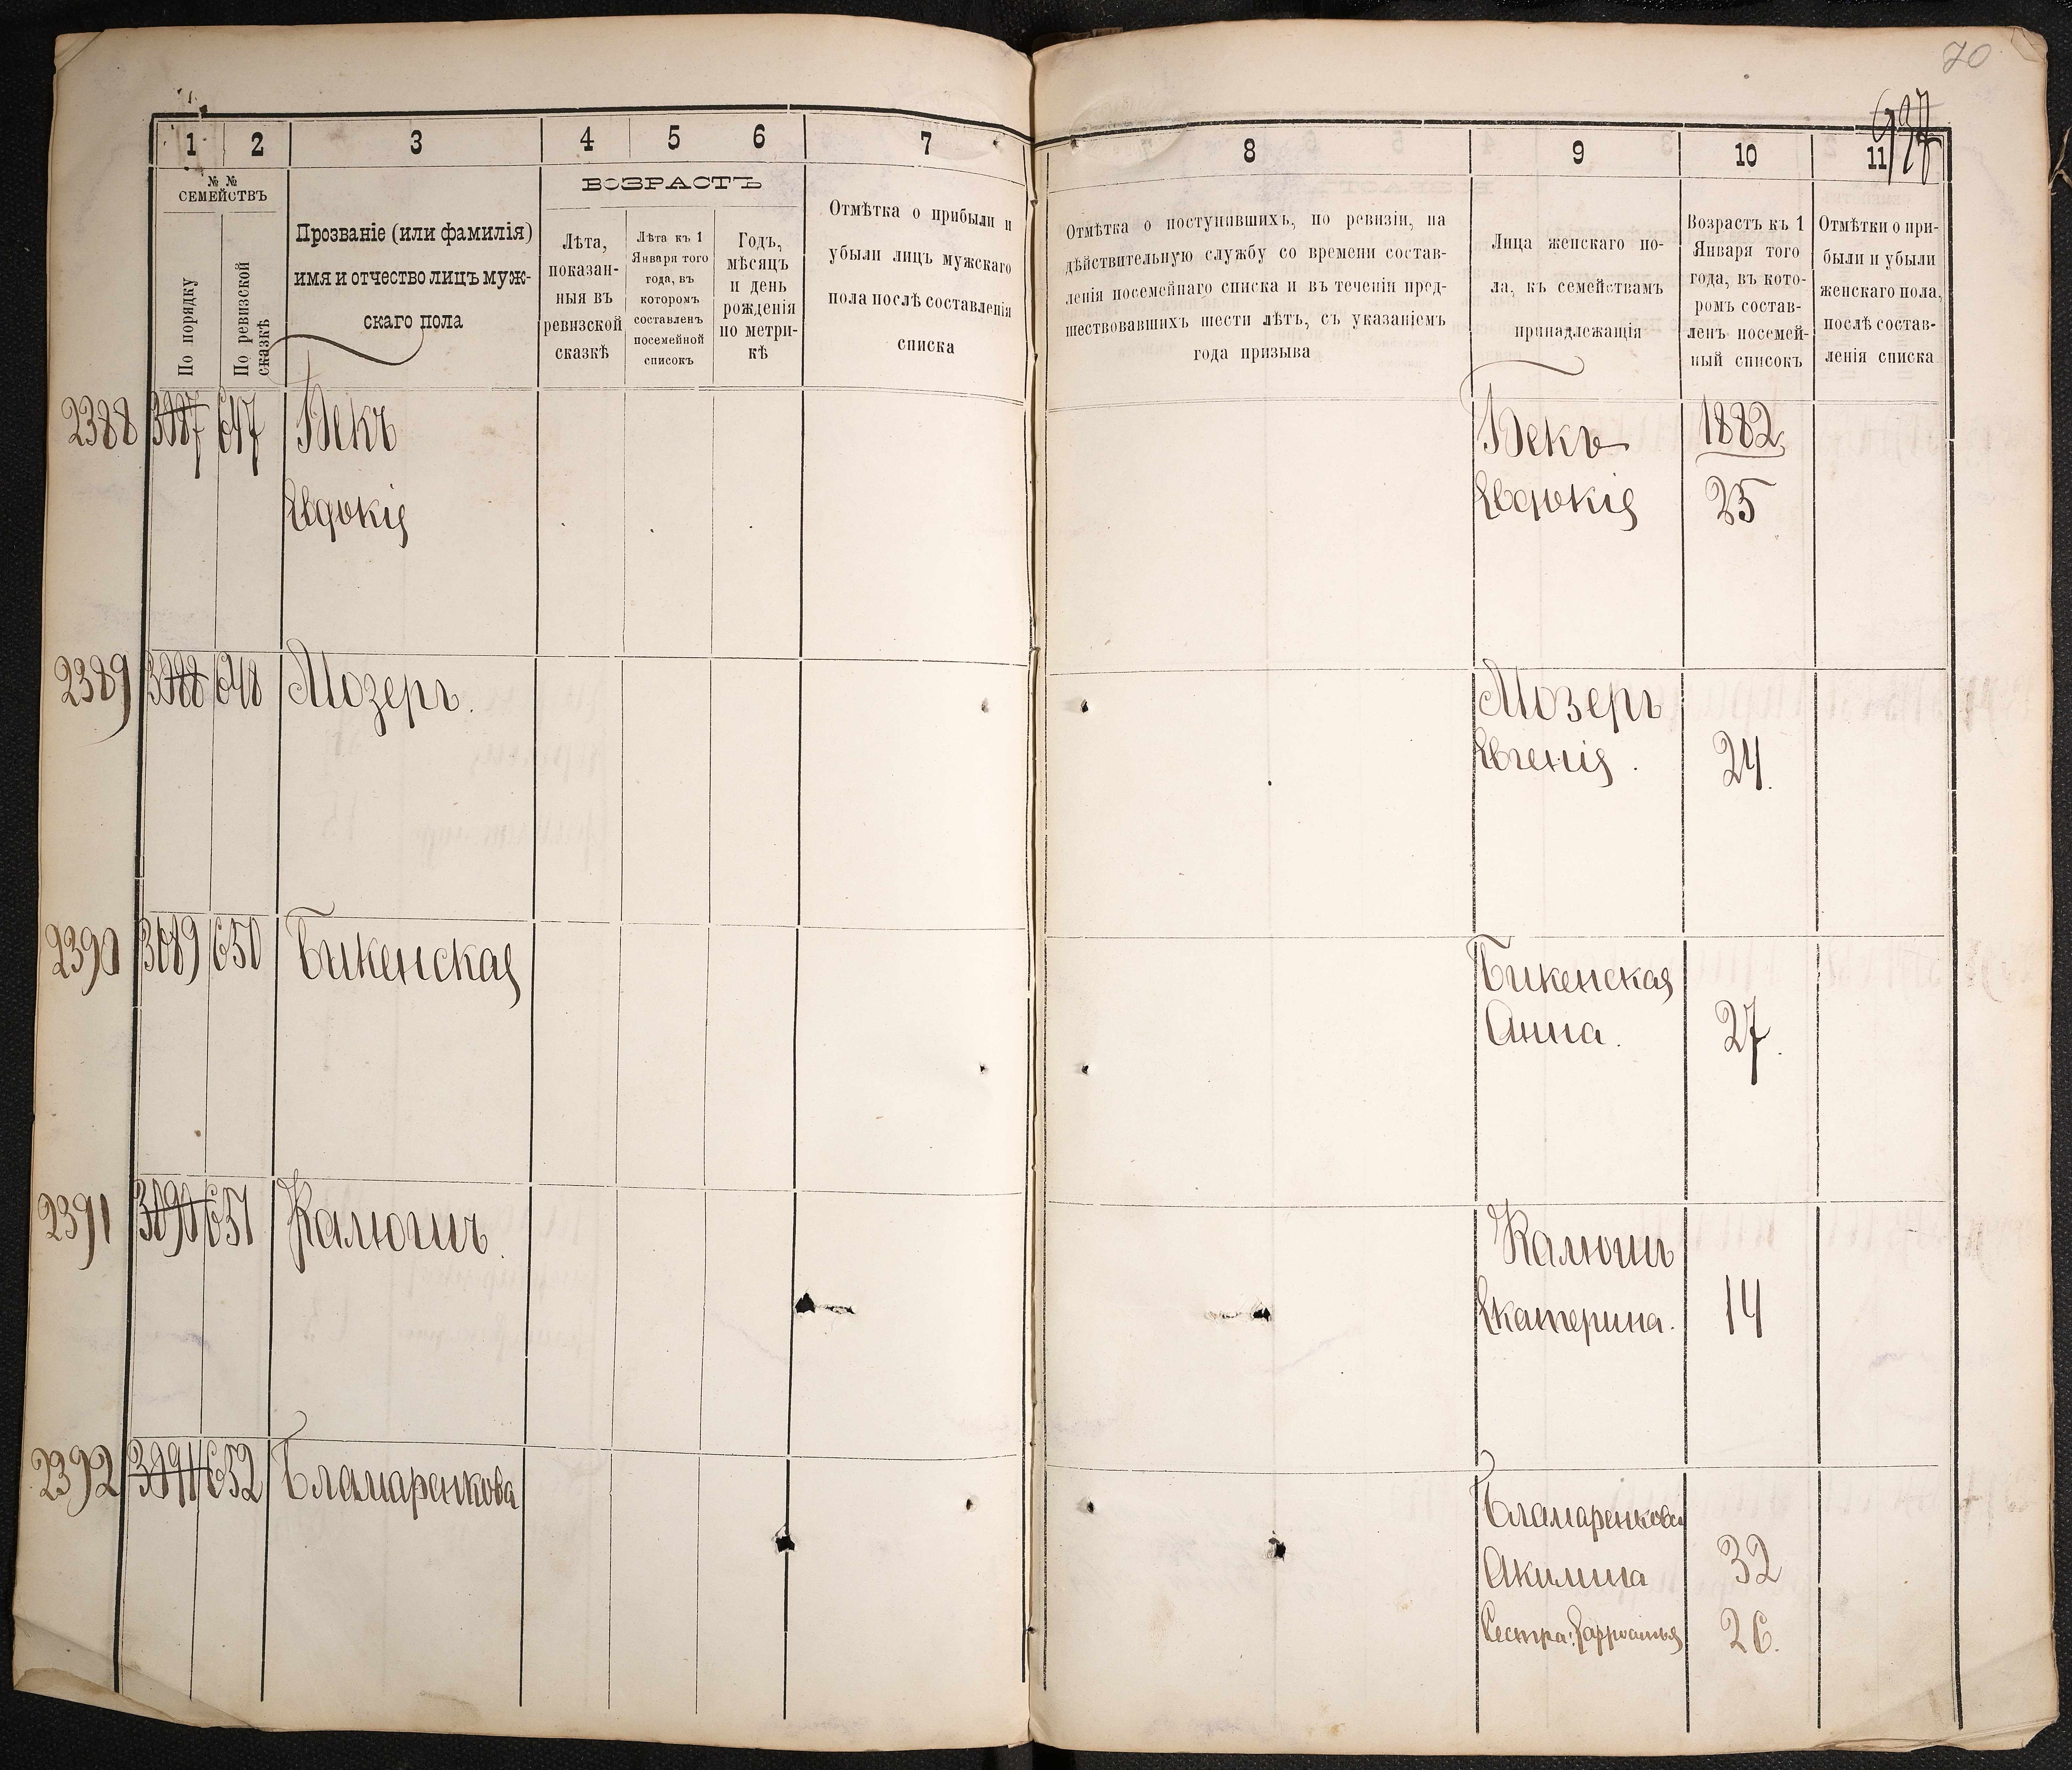 70
937
1 2 3 4 5 6 7
№ № СЕМЕЙСТВЪ
По порядку
По ревизской сказкѣ
Прозваніе (или фамилія)
имя и отчество лицъ муж-
скаго пола
ВОЗРАСТЪ
Лѣта,
показан-
ныя въ
ревизской
сказкѣ
Лѣта къ 1
Января того
года, въ
которомъ
составленъ
посемейной
списокъ
Годъ,
мѣсяцъ
и день
рожденія
по метри-
кѣ
Отмѣтка о прибыли и
убыли лицъ мужскаго
пола послѣ составленія
списка
8 9 10 11
Отмѣтка о поступившихъ, по ревизіи, на
дѣйствительную службу со времени состав-
ленія посемейнаго списка и въ теченіи пред-
шествовавшихъ шести лѣтъ, съ указаніемъ
года призыва
Лица женскаго по-
ла, къ семействамъ
принадлежащія
Возрастъ къ 1
Января того
года, въ кото-
ромъ состав-
ленъ посемей-
ный списокъ
Отмѣтки о при-
были и убыли
женскаго пола,
послѣ состав-
ленія списка
2388 3087 647 Бекъ
Евдокія
Бекъ 1882
Евдокія 25
2389 3088 648 Мозеръ.
Мозеръ
Евгенія. 24.
2390 3089 650 Бикенская
Бикенская
Анна. 27.
2391 3090 651 Калюшъ.
Калюшъ
Екатерина. 14
2392 3091 652
Акилина 32
Сестра: 26.